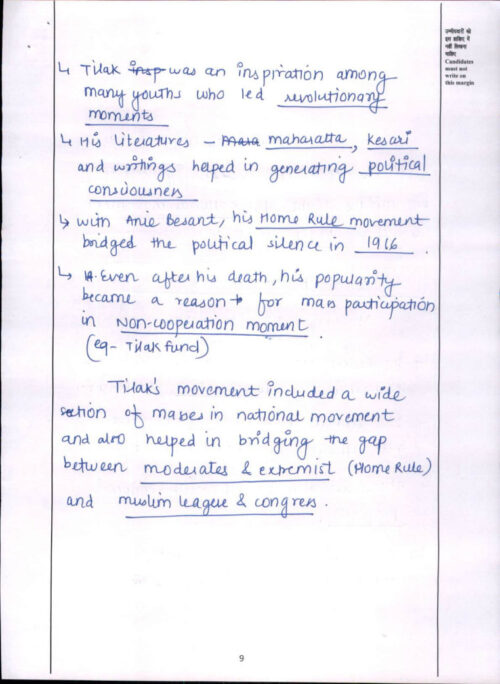 उम्मीदवारों को
इस हाशिए में
नहीं लिखना
चाहिए
Candidates
must not
write on
this margin
↳ Tilak insp was an inspiration among
many youths who led revolutionary
moments
↳ His literatures – Mara maharatta, Kesari
and writings helped in generating political
consciousness
↳ with Anie Besant, his Home Rule movement
bridged the political silence in 1916.
↳ Even after his death, his popularity
became a reason for mass participation
in Non-cooperation moment
(eg- Tilak fund)
Tilak's movement included a wide
section of masses in national movement
and also helped in bridging the gap
between moderates & extremist (Home Rule)
and muslim league & congress.
9